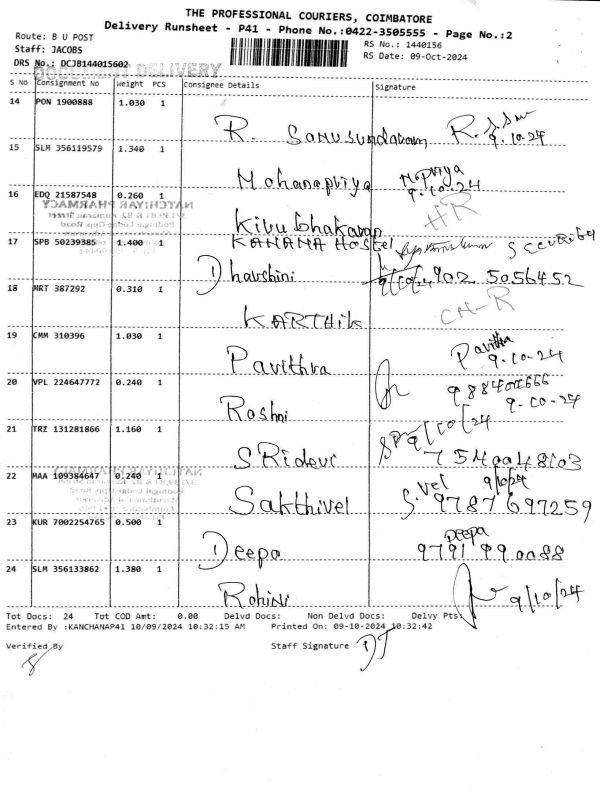 THE PROFESSIONAL COURIERS, COIMBATORE
Delivery Runsheet - P41 - Phone No.:0422-3505555 - Page No.:2
Route: B U POST
Staff: JACOBS
RS No.: 1440156
DRS No.: DCJB144015602
RS Date: 09-Oct-2024
DOCUMENT DELIVERY
S No Consignment No Weight PCS Consignee Details Signature
14 PON 1900888 1.030 1
R. Sanusundaram R.
9.10.24
15 SLM 356119579 1.340 1
Mohanapriya
9.10.24
16 EDQ 21587548 0.260 1
NATCHIYAR PHARMACY
HR
17 SPB 50239385 1.400 1
KANANA Hostel
Dharshini 902 5056452
18 MRT 387292 0.310 1
KARTHIK
19 CMM 310396 1.030 1
Pavithra Pavithra
9.10-24
20 VPL 224647772 0.240 1
Roshni
9-10-24
21 TRZ 131281866 1.160 1
9/10/24
SRidevi 7540048103
22 MAA 109384647 0.240 1
NATCHIYAR PHARMACY
Sakthivel S.vel 9/10/24
9787697259
23 KUR 7002254765 0.500 1
Deepa Deepa
9791990088
24 SLM 356133862 1.380 1
Rohini 9/10/24
Tot Docs: 24 Tot COD Amt: 0.00 Delvd Docs: Non Delvd Docs: Delvy Pts:
Entered By :KANCHANAP41 10/09/2024 10:32:15 AM Printed On: 09-10-2024 10:32:42
Verified By Staff Signature